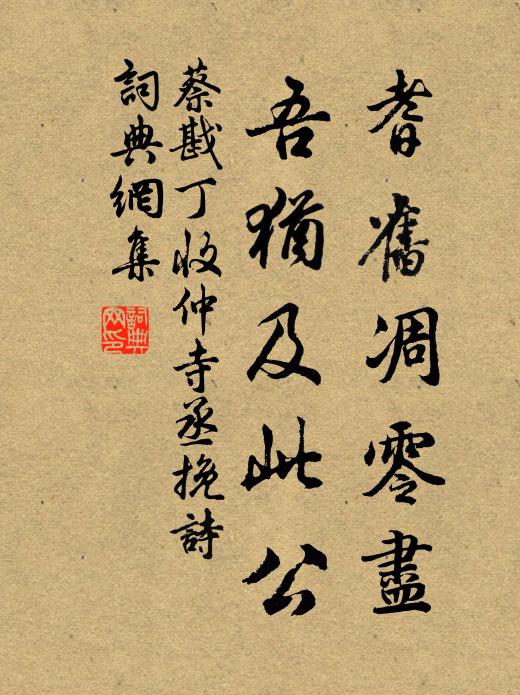 耆舊凋零盡
吾猶及此公
蔡戡丁收仲寺丞挽詩
詞典網集
詞典
网印